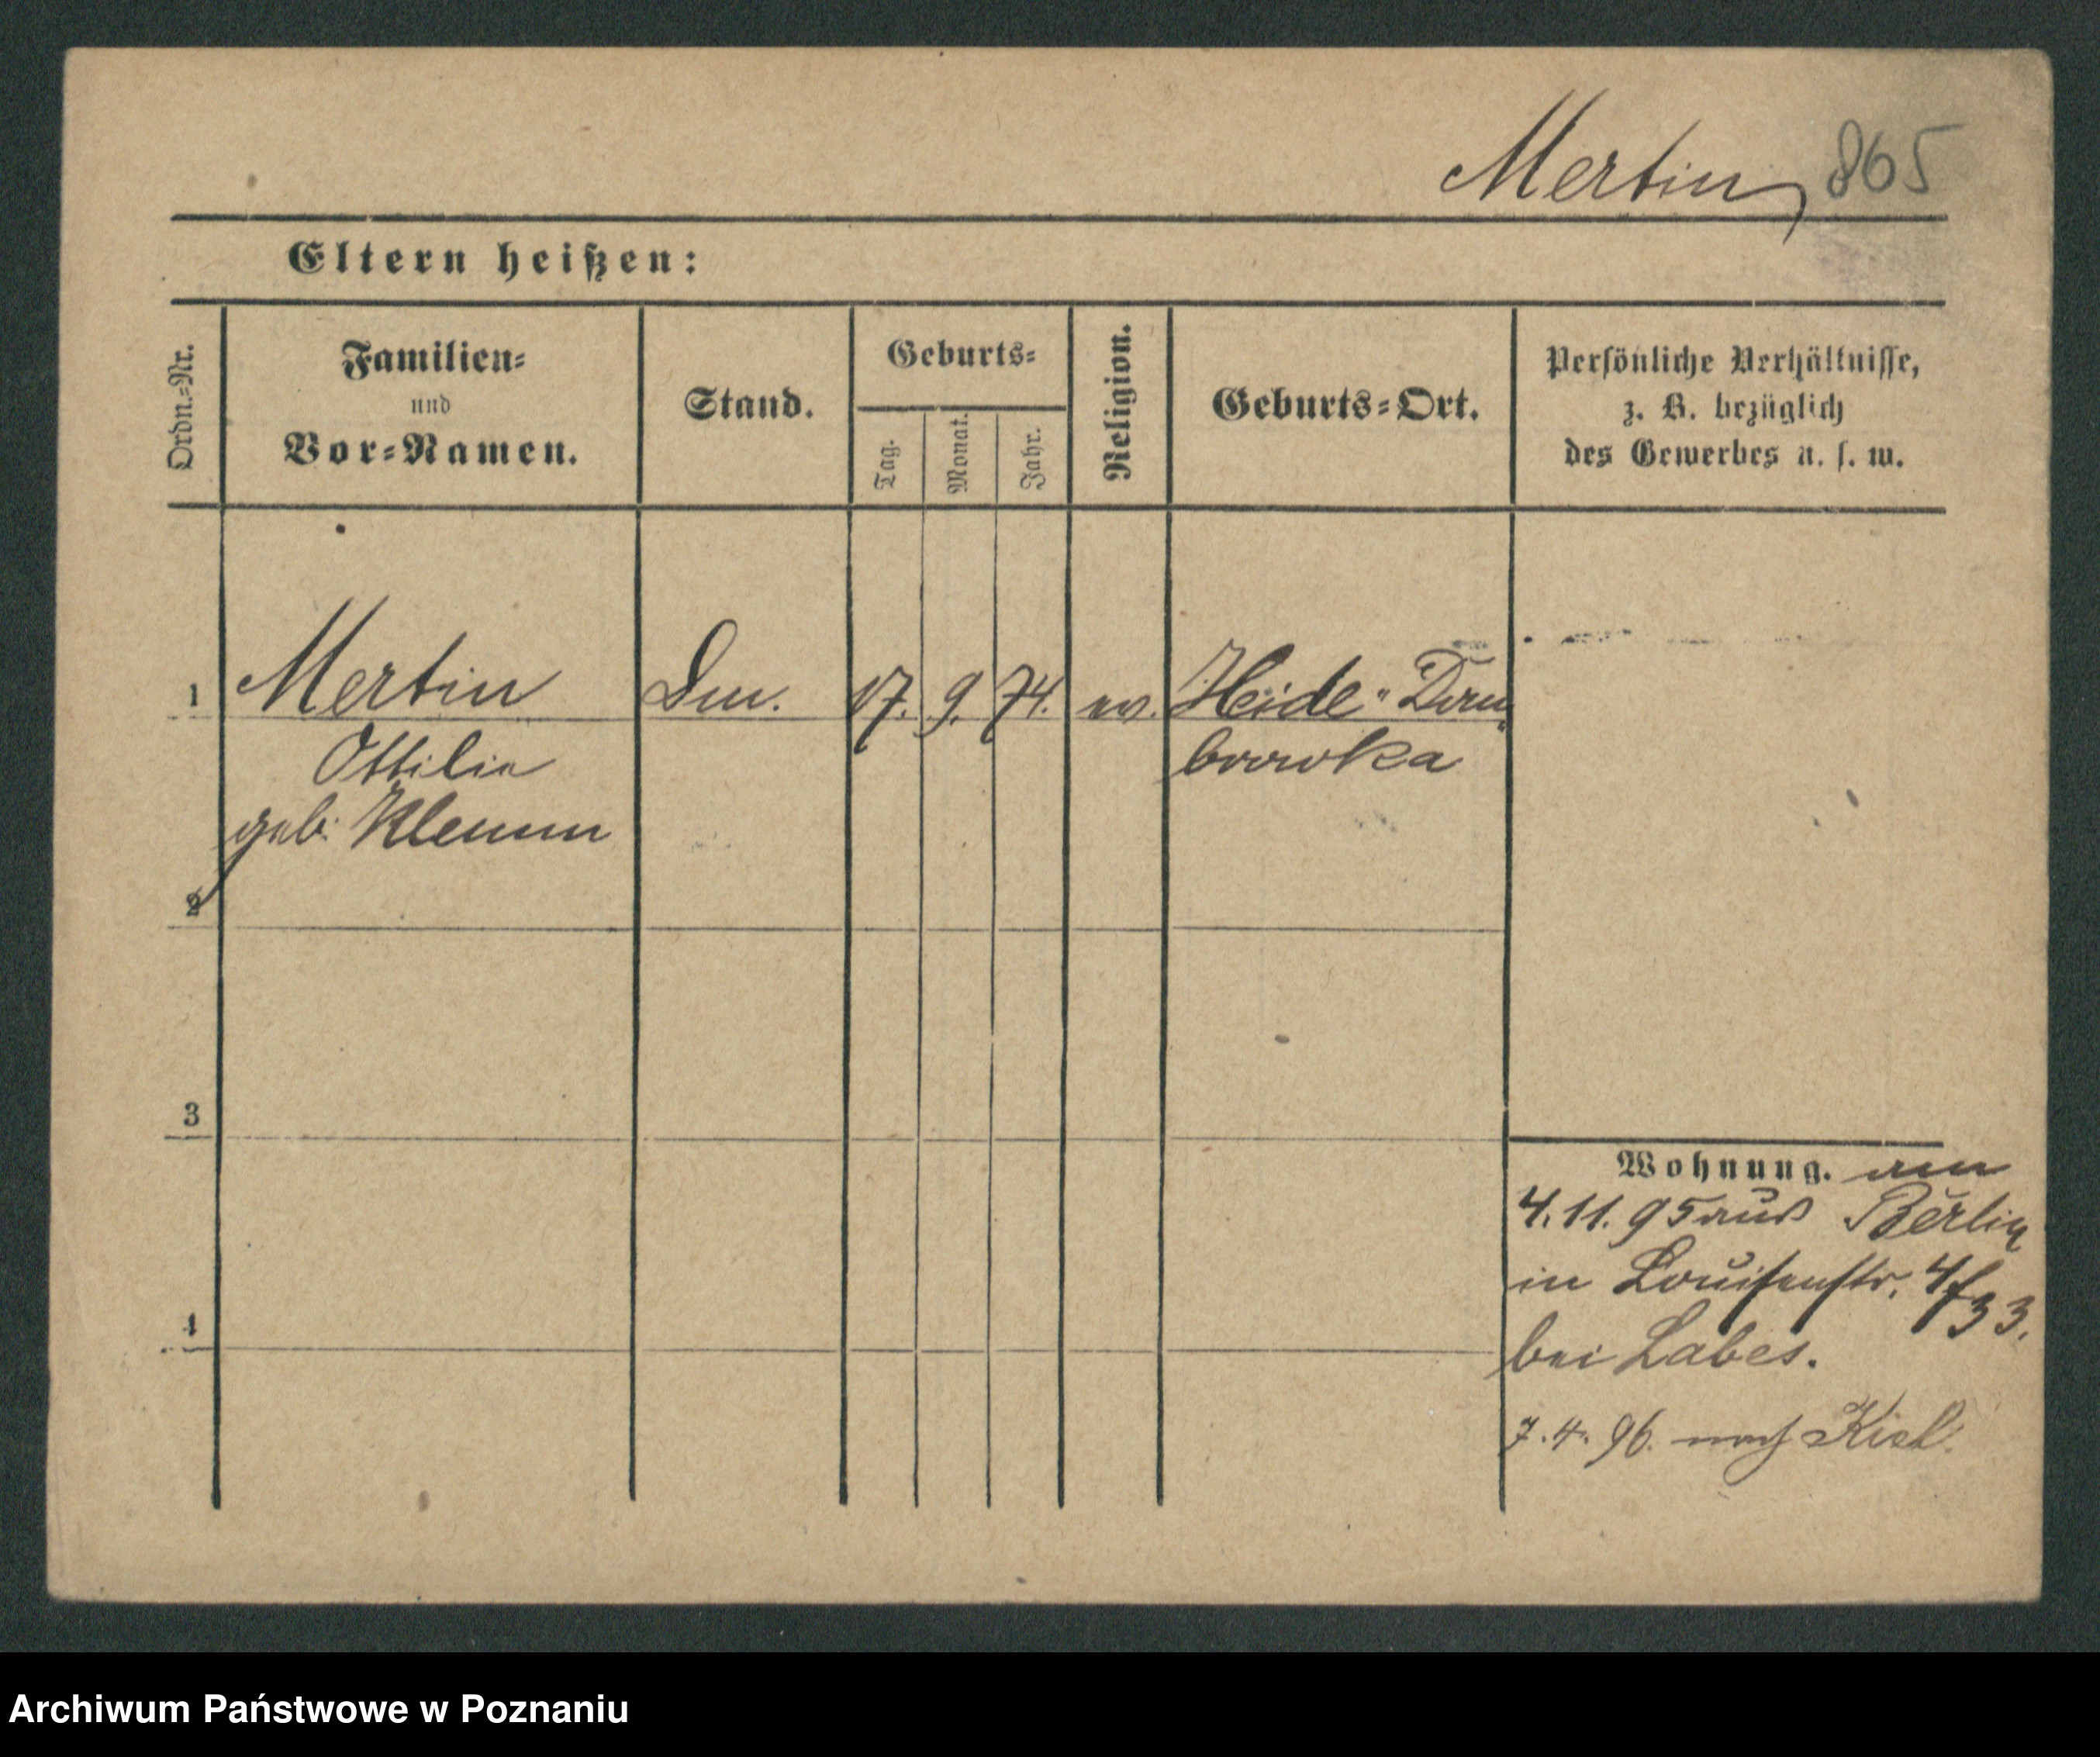 Mertin 865
Eltern heißen:
Ordn.=Nr.
Familien=
und
Vor=Namen.
Stand.
Geburts=
Tag.
Monat.
Jahr.
Religion.
Geburts=Ort.
Persönliche Verhältnisse,
z. B. bezüglich
des Gewerbes u. s. w.
1 Mertin 17. 9. 74. ev. Heide- Dom
Ottilie browka
geb. Klemm
2
3
4
Wohnung. am
4. 11. 95 aus Berlin
in Louisenstr. 4/33.
bei Labes.
7. 4. 96. nach Kiel.
Archiwum Państwowe w Poznaniu